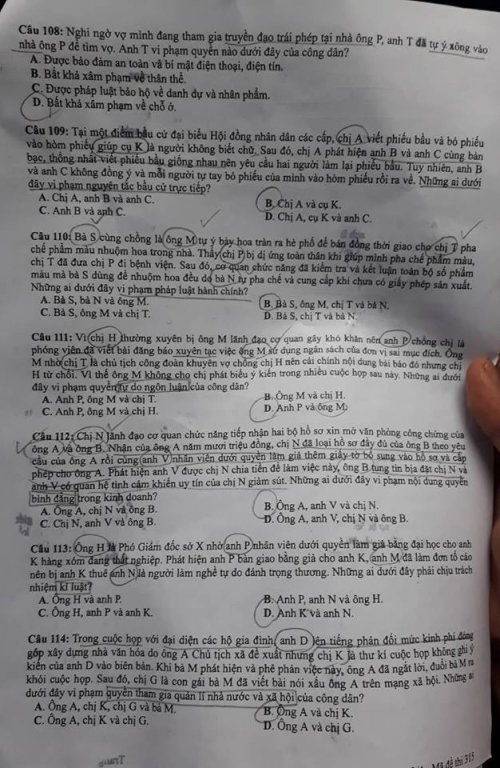 Câu 108: Nghi ngờ vợ mình đang tham gia truyền đạo trái phép tại nhà ông P, anh T đã tự ý xông vào
nhà ông P để tìm vợ. Anh T vi phạm quyền nào dưới đây của công dân?
A. Được bảo đảm an toàn và bí mật điện thoại, điện tín.
B. Bất khả xâm phạm về thân thể.
C. Được pháp luật bảo hộ về danh dự và nhân phẩm.
D. Bất khả xâm phạm về chỗ ở.
Câu 109: Tại một điểm bầu cử đại biểu Hội đồng nhân dân các cấp, chị A viết phiếu bầu và bỏ phiếu
vào hòm phiếu giúp cụ K là người không biết chữ. Sau đó, chị A phát hiện anh B và anh C cùng bàn
bạc, thống nhất viết phiếu bầu giống nhau nên yêu cầu hai người làm lại phiếu bầu. Tuy nhiên, anh B
và anh C không đồng ý và mỗi người tự tay bỏ phiếu của mình vào hòm phiếu rồi ra về. Những ai dưới
đây vi phạm nguyên tắc bầu cử trực tiếp?
A. Chị A, anh B và anh C. B. Chị A và cụ K.
C. Anh B và anh C. D. Chị A, cụ K và anh C.
Câu 110: Bà S cùng chồng là ông M tự ý bày hoa tràn ra hè phố để bán đồng thời giao cho chị T pha
chế phẩm màu nhuộm hoa trong nhà. Thấy chị P bị dị ứng toàn thân khi giúp mình pha chế phẩm màu,
chị T đã đưa chị P đi bệnh viện. Sau đó, cơ quan chức năng đã kiểm tra và kết luận toàn bộ số phẩm
màu mà bà S dùng để nhuộm hoa đều do bà N tự pha chế và cung cấp khi chưa có giấy phép sản xuất.
Những ai dưới đây vi phạm pháp luật hành chính?
A. Bà S, bà N và ông M. B. Bà S, ông M, chị T và bà N.
C. Bà S, ông M và chị T. D. Bà S, chị T và bà N.
Câu 111: Vì chị H thường xuyên bị ông M lãnh đạo cơ quan gây khó khăn nên anh P chồng chị là
phóng viên đã viết bài đăng báo xuyên tạc việc ông M sử dụng ngân sách của đơn vị sai mục đích. Ông
M nhờ chị T là chủ tịch công đoàn khuyên vợ chồng chị H nên cải chính nội dung bài báo đó nhưng chị
H từ chối. Vì thế ông M không cho chị phát biểu ý kiến trong nhiều cuộc họp sau này. Những ai dưới
đây vi phạm quyền tự do ngôn luận của công dân?
A. Anh P, ông M và chị T. B. Ông M và chị H.
C. Anh P, ông M và chị H. D. Anh P và ông M.
Câu 112: Chị N lãnh đạo cơ quan chức năng tiếp nhận hai bộ hồ sơ xin mở văn phòng công chứng của
ông A và ông B. Nhận của ông A năm mươi triệu đồng, chị N đã loại hồ sơ đầy đủ của ông B theo yêu
cầu của ông A rồi cùng anh V nhân viên dưới quyền làm giả thêm giấy tờ bổ sung vào hồ sơ và cấp
phép cho ông A. Phát hiện anh V được chị N chia tiền để làm việc này, ông B tung tin bịa đặt chị N và
anh V có quan hệ tình cảm khiến uy tín của chị N giảm sút. Những ai dưới đây vi phạm nội dung quyền
bình đẳng trong kinh doanh?
A. Ông A, chị N và ông B. B. Ông A, anh V và chị N.
C. Chị N, anh V và ông B. D. Ông A, anh V, chị N và ông B.
Câu 113: Ông H là Phó Giám đốc sở X nhờ anh P nhân viên dưới quyền làm giả bằng đại học cho anh
K hàng xóm đang thất nghiệp. Phát hiện anh P bàn giao bằng giả cho anh K, anh M đã làm đơn tố cáo
nên bị anh K thuê anh N là người làm nghề tự do đánh trọng thương. Những ai dưới đây phải chịu trách
nhiệm kỉ luật?
A. Ông H và anh P. B. Anh P, anh N và ông H.
C. Ông H, anh P và anh K. D. Anh K và anh N.
Câu 114: Trong cuộc họp với đại diện các hộ gia đình, anh D lên tiếng phản đối mức kinh phí đóng
góp xây dựng nhà văn hóa do ông A Chủ tịch xã đề xuất nhưng chị K là thư kí cuộc họp không ghi ý
kiến của anh D vào biên bản. Khi bà M phát hiện và phê phán việc này, ông A đã ngắt lời, đuổi bà M ra
khỏi cuộc họp. Sau đó, chị G là con gái bà M đã viết bài nói xấu ông A trên mạng xã hội. Những ai
dưới đây vi phạm quyền tham gia quản lí nhà nước và xã hội của công dân?
A. Ông A, chị K, chị G và bà M. B. Ông A và chị K.
C. Ông A, chị K và chị G. D. Ông A và chị G.
Mã đề thi 315